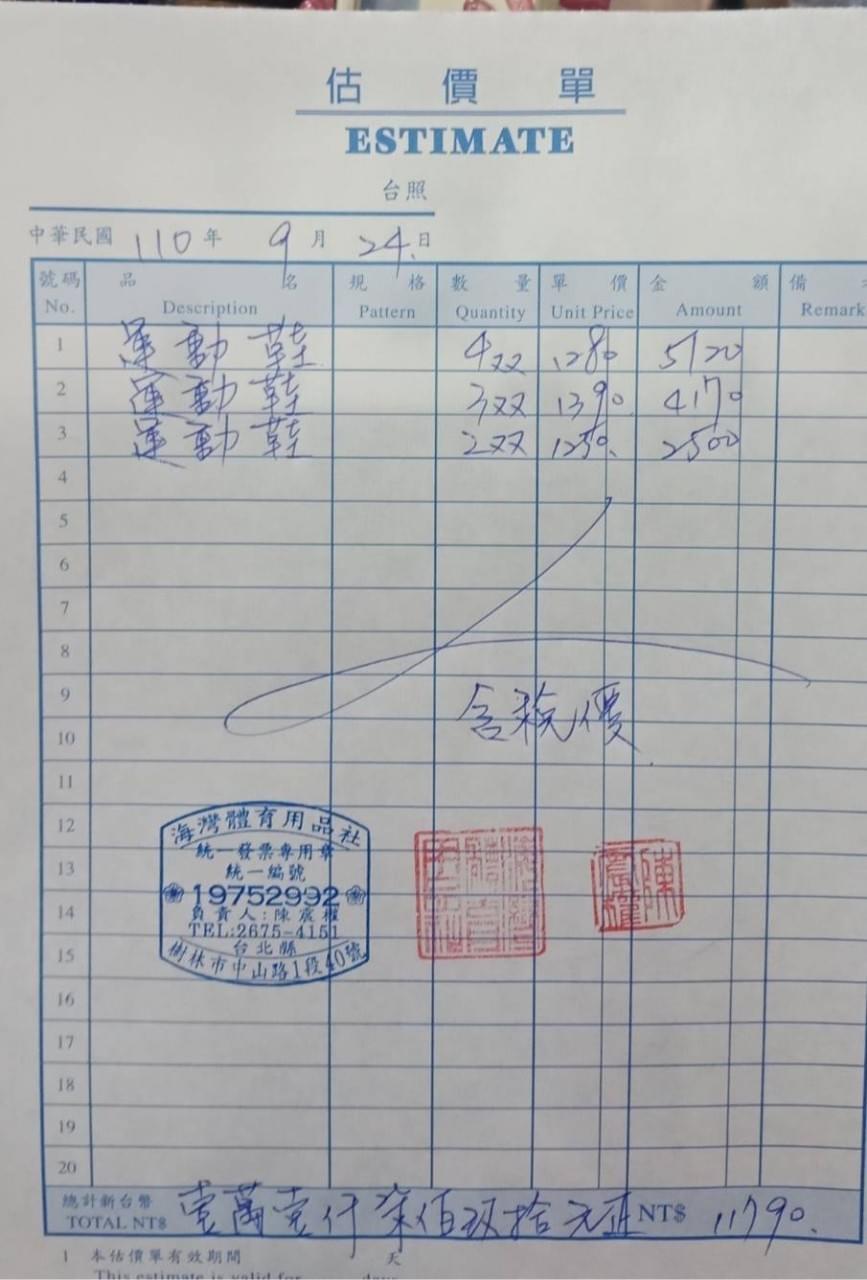 估價單
ESTIMATE
台照
中華民國 110 年 9 月 24 日
號碼 品名 規格 數量 單價 金額 備
No. Description Pattern Quantity Unit Price Amount Remark
1 運動鞋 4双 1280 5120
2 運動鞋 3双 1390 4170
3 運動鞋 2双 1250 2500
4
5
6
7
8
9
含稅價
10
11
12
13
14
15
16
17
18
19
20
海灣體育用品社
統一發票專用章
統一編號
19752992
負責人:陳震權
TEL:2675-4151
台北縣
樹林市中山路1段40號
總計新台幣 壹萬壹仟柒佰玖拾元正 NT$ 11790
TOTAL NT$
1 本估價單有效期間 天
This estimate is valid for days